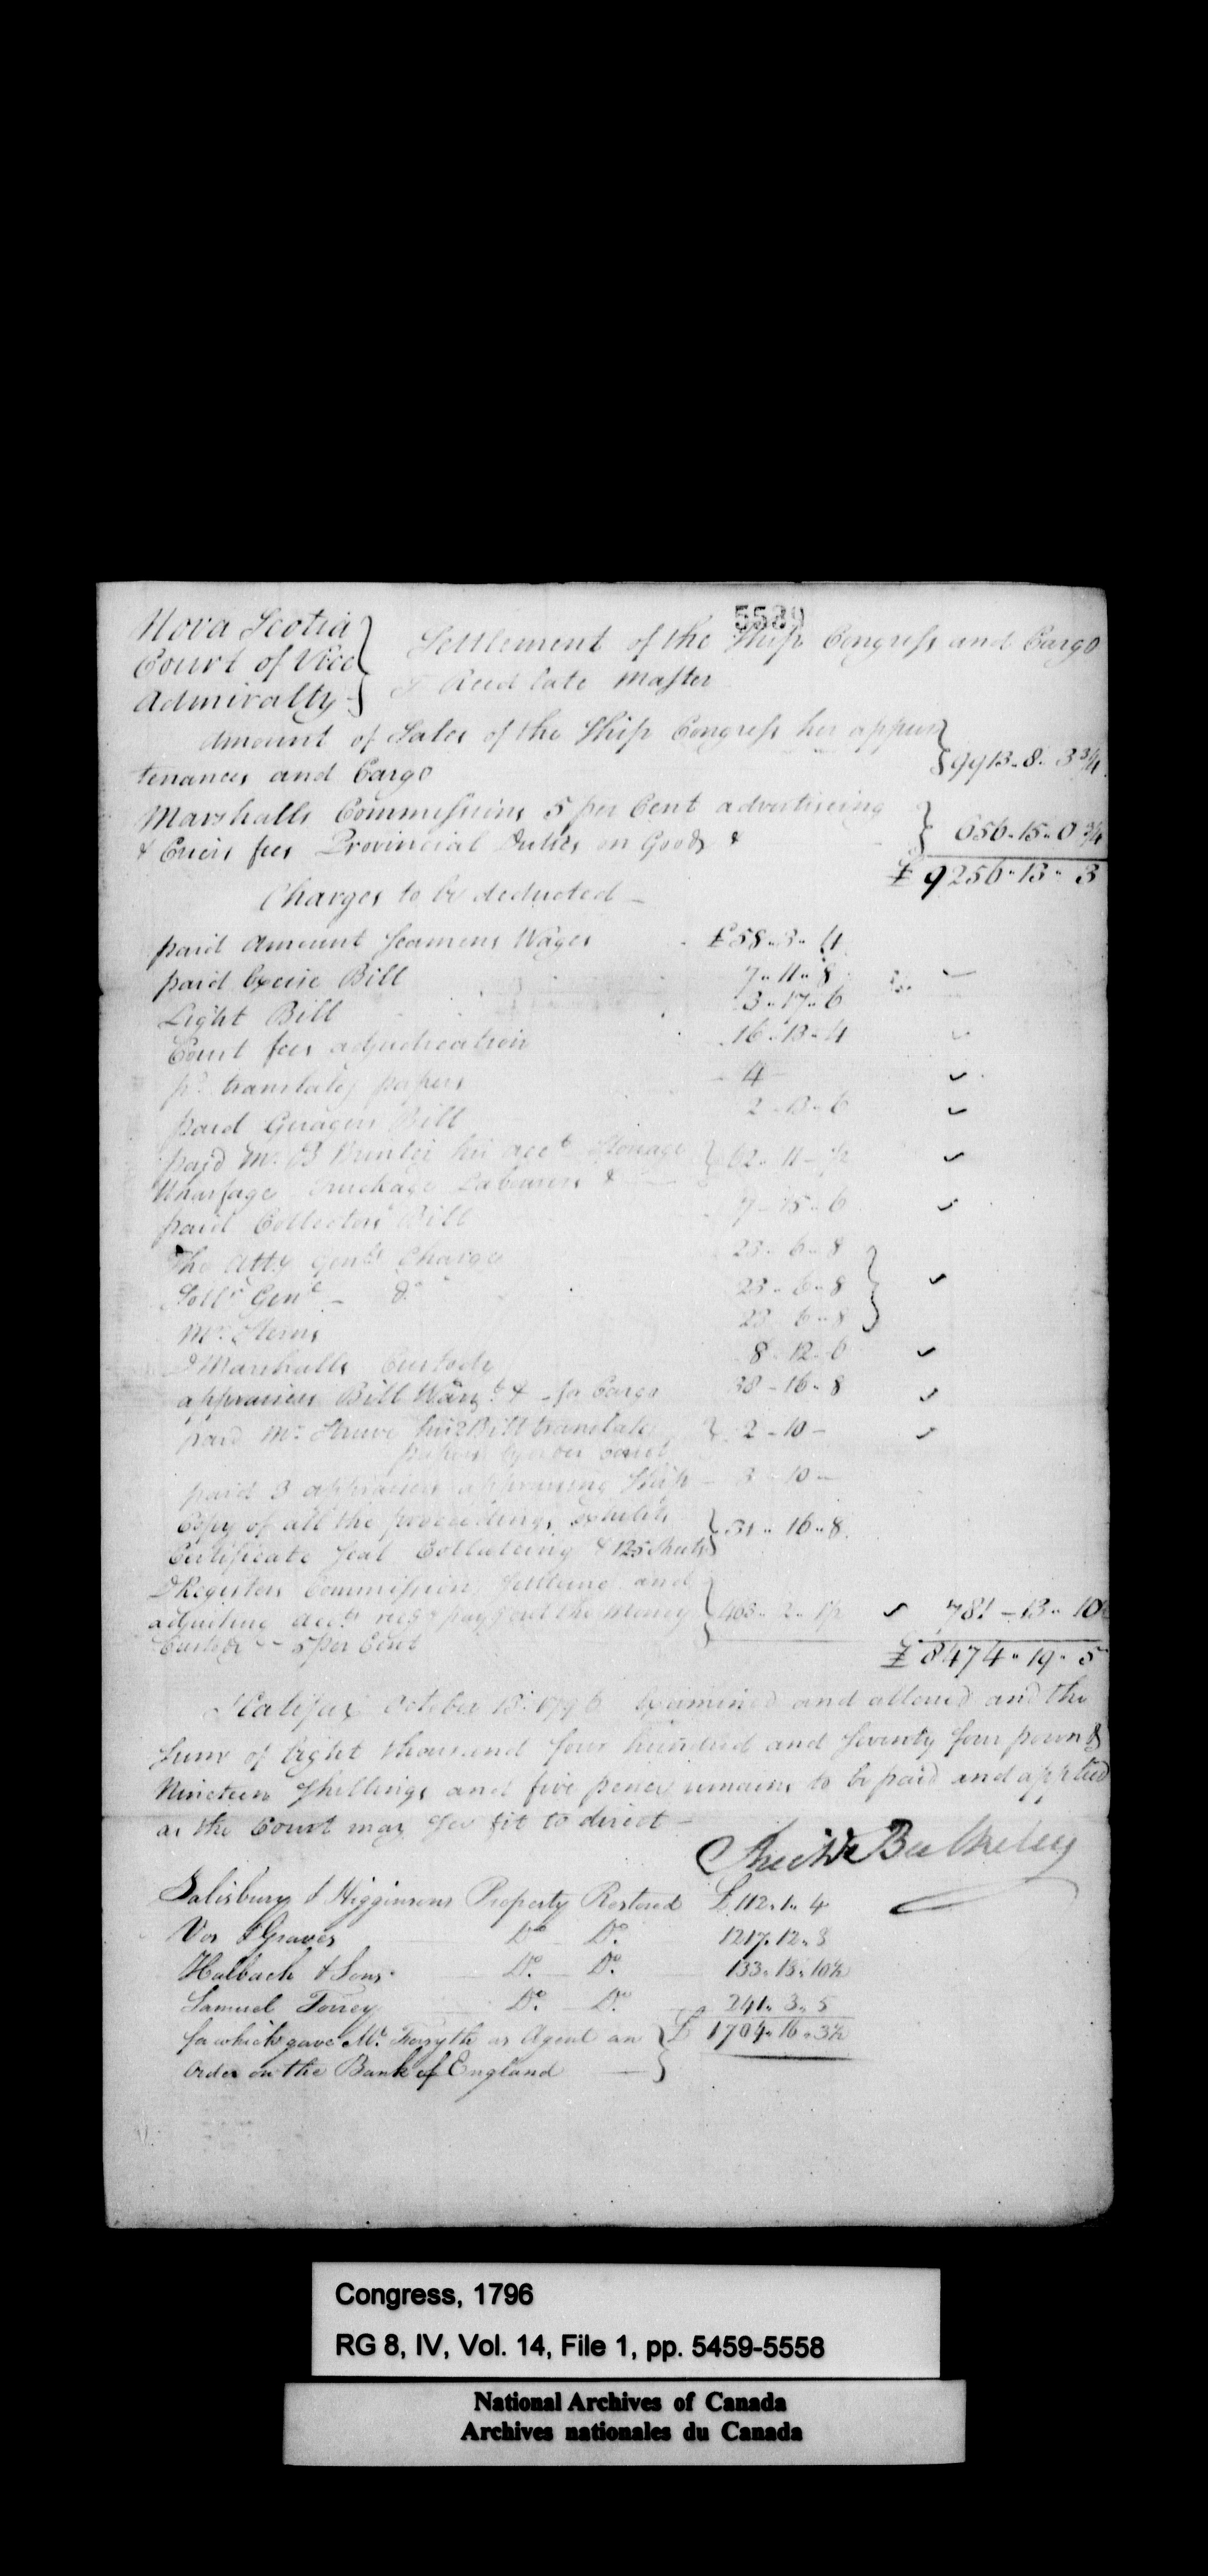 5539
Nova Scotia
Court of Vice
Admiralty
Settlement of the Ship Congress and Cargo
Reed late Master
Amount of Sales of the Ship Congress her appur
tenances and Cargo 9913. 8. 3 3/4
Marshalls Commissions 5 per Cent advertiseing
& Criers fees Provincial Duties on Goods & 656. 15. 0 3/4
£ 9256. 13. 3
Charges to be deducted –
paid amount Seamens Wages £58. 3. 4
paid Excise Bill 7. 11. 8
Light Bill 3. 17. 6
Court fees adjudication 16. 13. 4
pd. translatg papers 4
paid Guagers Bill 2. 13. 6
paid Mr. B his acct Storage
Wharfage Truckage Labourers & 62. 11 – 1/2
paid Collectors Bill 7 – 15. 6
The Atty Genls Charge 23. 6. 8
Sollr Genl – Do 23. 6. 8
Mr. Sterns 23. 6. 8
DMarshalls Custody 8. 12. 6
appraisers Bill & – for Cargo 38 – 16. 8
paid Mr. his Bill translatg
papers 2 – 10 –
paid 3 appraisers appraising Ship – 3 – 10 –
Copy of all the proceedings, Exhibits
Certificate Seal Collateing & 125 Sheets 31. 16. 8
DRegisters Commissions Settleing and
adjusting accts recg & payg out the Money
Custody – – 5 per Cent 463. 2. 1/2 781 – 13. 10
£ 8474. 19. 5
Halifax October 13. 1796 Examined and allowed and the
Sum of Eight thousand four hundred and Seventy four pounds
Nineteen Shillings and five pence remains to be paid and applied
as the Court may See fit to direct –
Bulkeley
Salisbury & Higginsons Property Restored £ 112. 1. 4
Vos & Graves Do Do 1217. 12. 8
Halbach & Sons Do Do 133. 18. 10 1/2
Samuel Torrey Do Do 241. 3. 5
for which gave Mr. Forsyth as Agent an £ 1704. 16. 3 1/2
Order on the Bank of England
Congress, 1796
RG 8, IV, Vol. 14, File 1, pp. 5459-5558
National Archives of Canada
Archives nationales du Canada